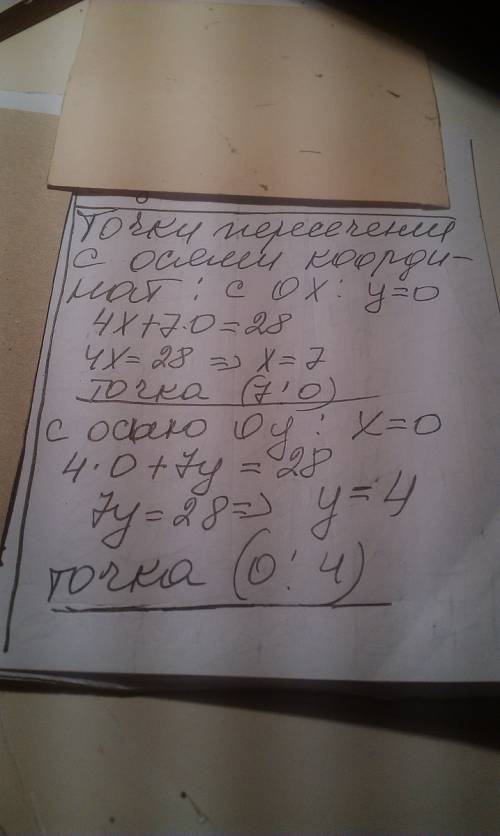 Точки пересечения
с осями коорди-
нат: с OX: y=0
4x+7·0=28
4x=28 => x=7
точка (7;0)
с осью Oy: x=0
4·0+7y=28
7y=28=> y=4
точка (0;4)